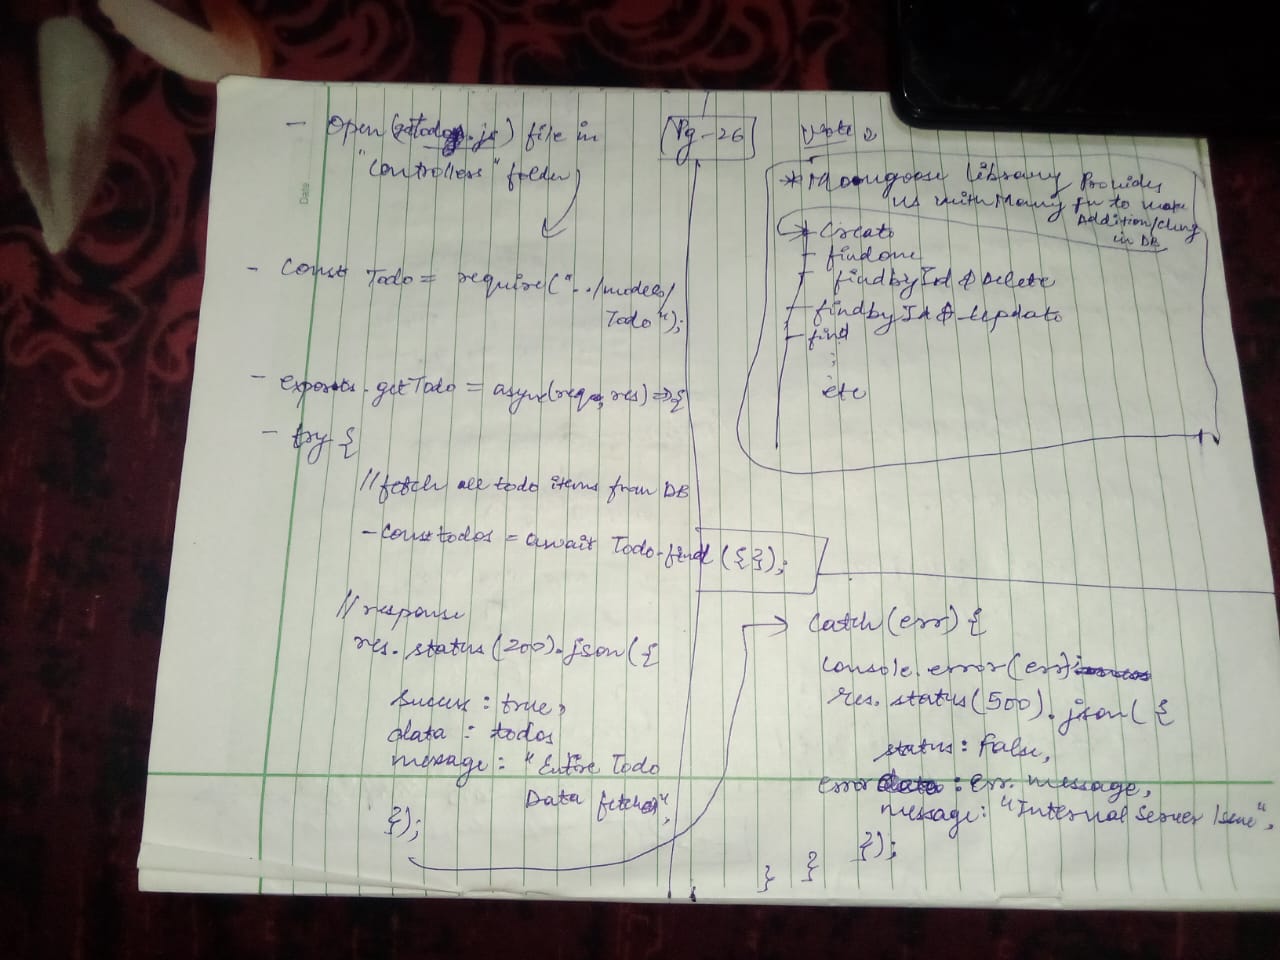 Pg-26
- Open (getTodo.js) file in
"controllers" folder
- const Todo = require("../models/
Todo");
- exports.getTodo = async(req, res) => {
- try {
// fetch all todo items from DB
- const todos = await Todo.find({});
// response
res.status(200).json({
success : true,
data : todos
message : "Entire Todo
Data fetched",
});
Note :
* Mongoose library Provides
us with Many fn to make
Addition/
in DB
* Create
- findone
- findbyId & Delete
- findbyId & Update
- find
:
etc
catch(err) {
console.error(err);
res.status(500).json({
status : False,
error : Err. message,
message : "Internal Server Issue",
});
} }